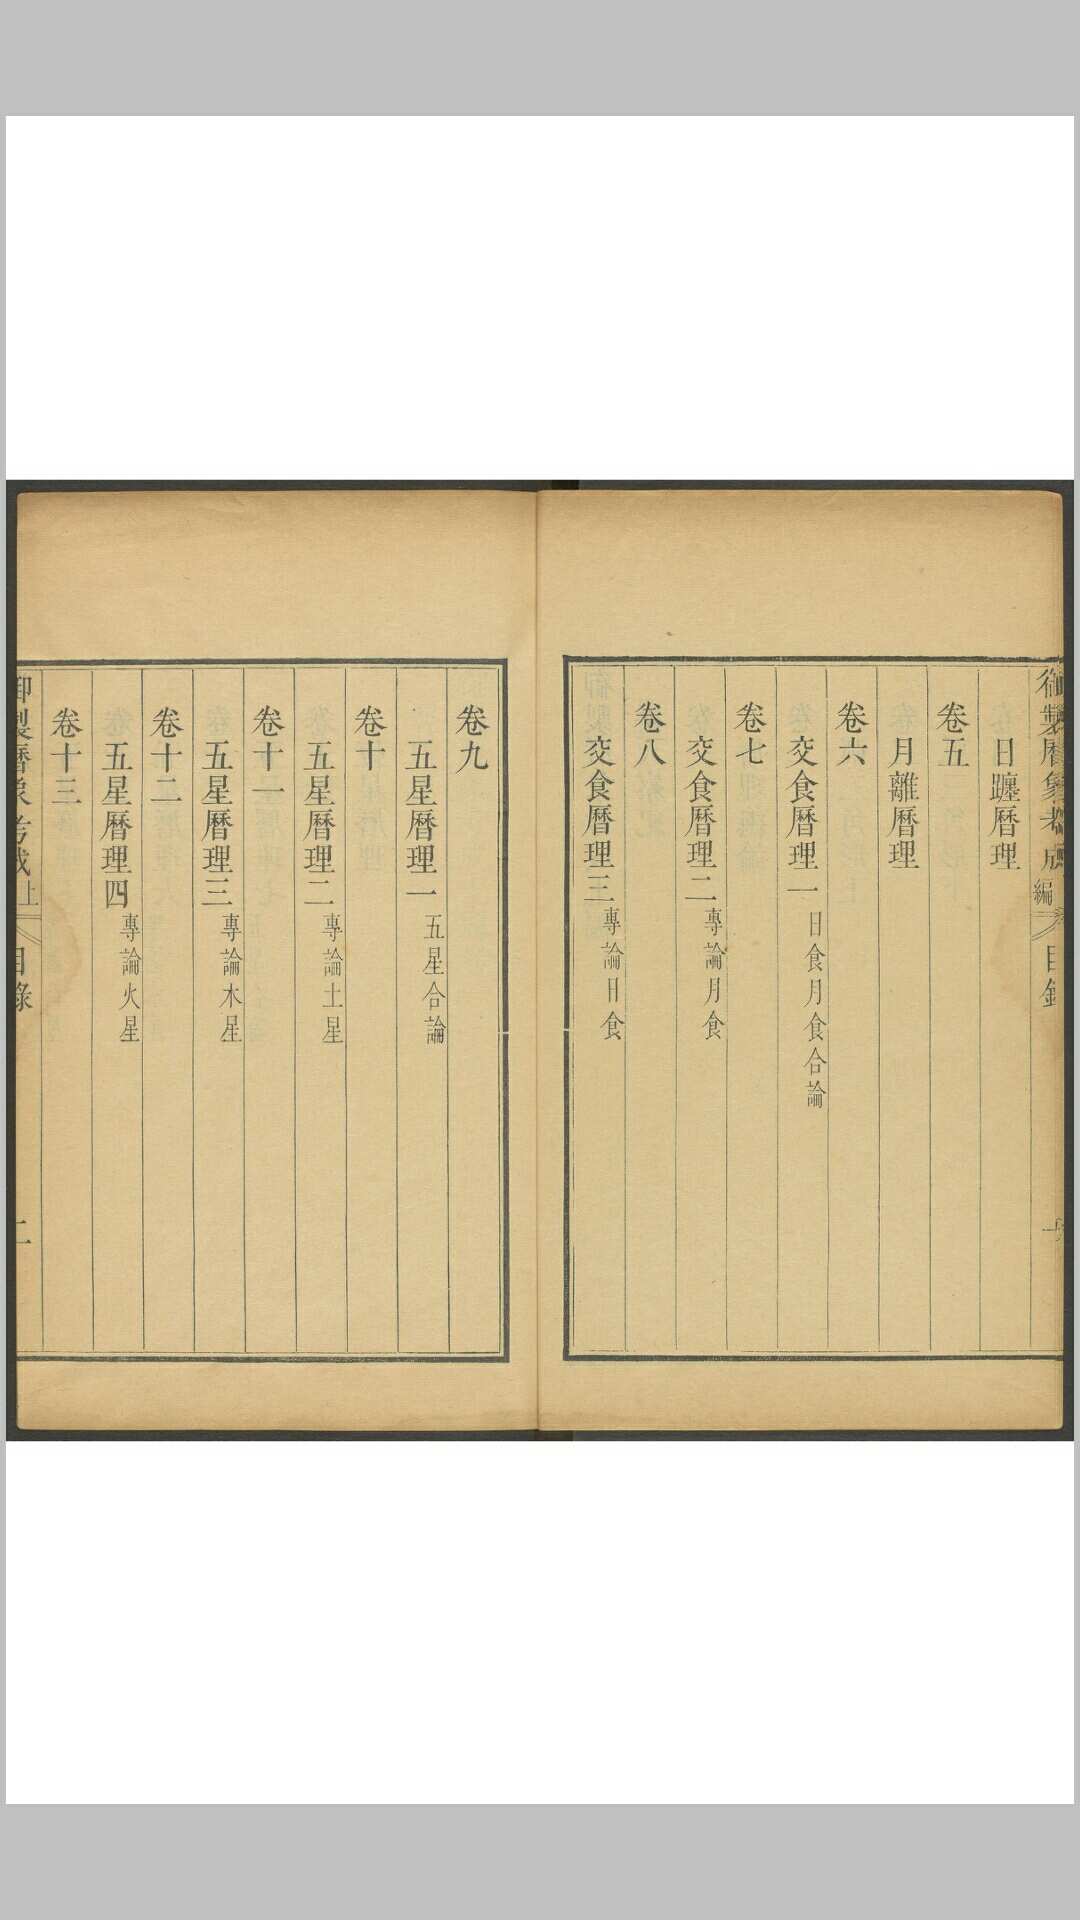 御製曆象考成
編
目錄
日躔曆理
卷五
月離曆理
卷六
交食曆理一 日食月食合論
卷七
交食曆理二 專論月食
卷八
交食曆理三 專論日食
卷九
五星曆理一 五星合論
卷十
五星曆理二 專論土星
卷十一
五星曆理三 專論木星
卷十二
五星曆理四 專論火星
卷十三
御製曆象考成 上
目錄
二